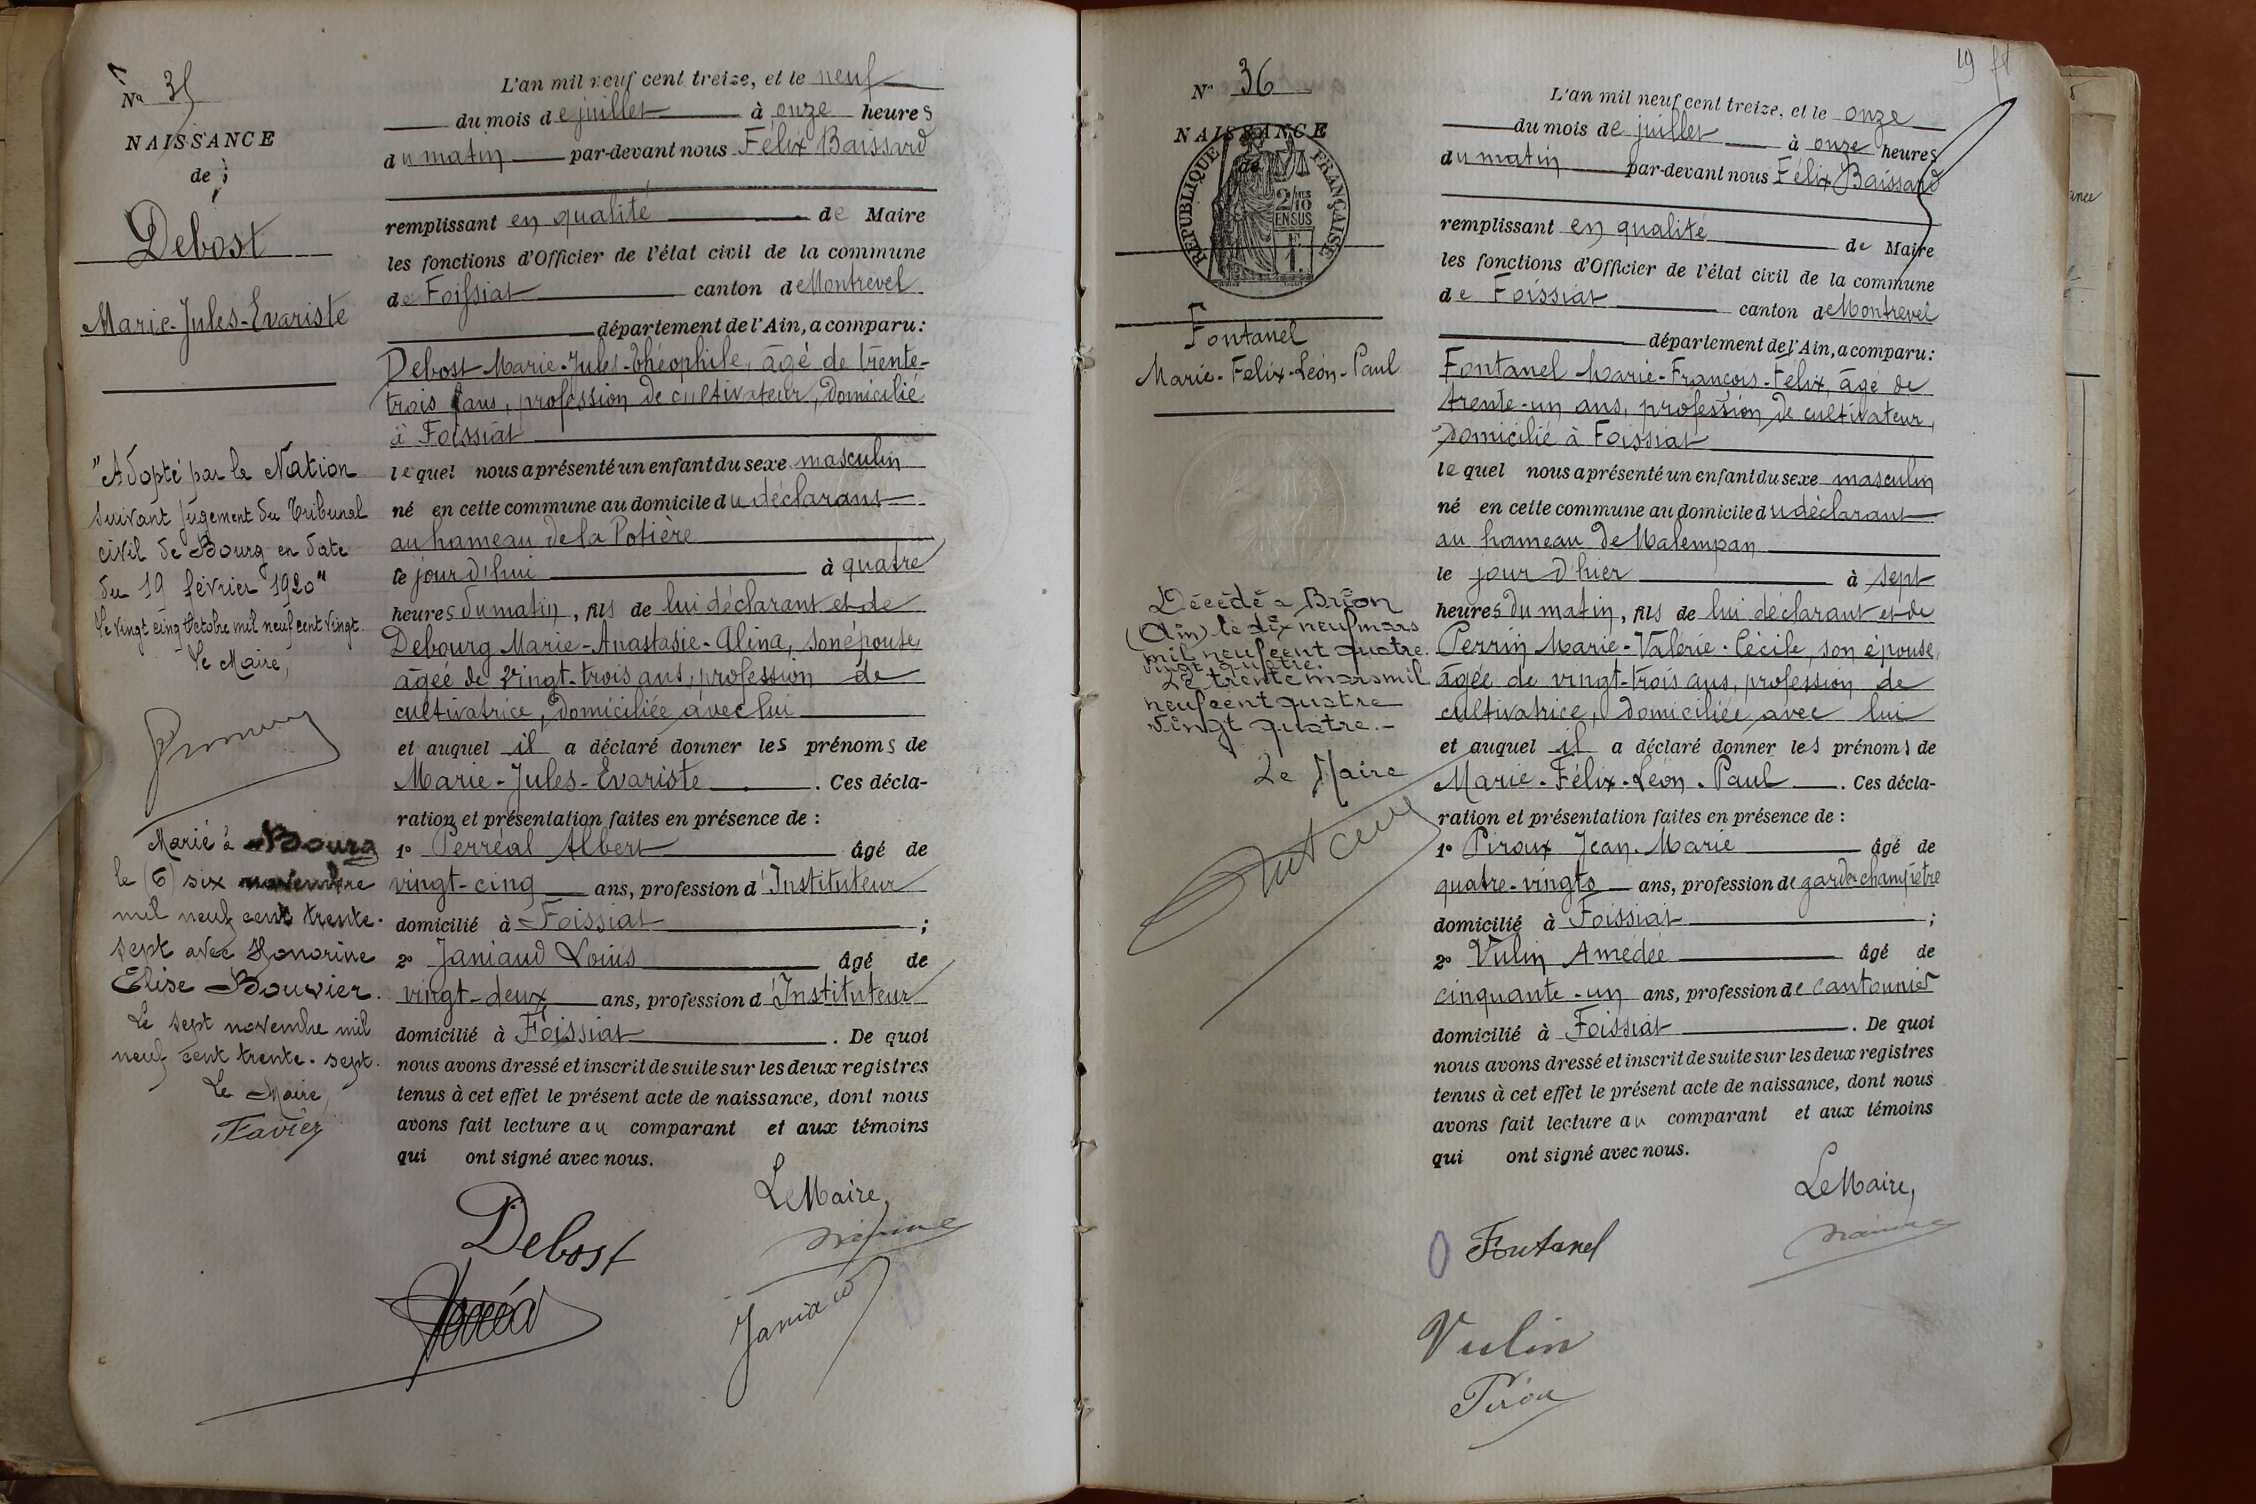 No 35
NAISSANCE
de :
Debost
Marie-Jules-Evariste
"Adopté par la Nation
suivant jugement du Tribunal
civil de Bourg en date
du 19 février 1920"
Le vingt cinq Octobre mil neuf cent vingt.
Le Maire,
Marié à Bourg
le (6) six novembre
mil neuf cent trente-
sept avec Honorine
Elise Bouvier.
Le sept novembre mil
neuf cent trente-sept.
Le Maire,
Favier
L'an mil neuf cent treize, et le neuf
du mois de juillet à onze heures
du matin par-devant nous Félix Baissard
remplissant en qualité de Maire
les fonctions d'Officier de l'état civil de la commune
de Foissiat canton de Montrevel
département de l'Ain, a comparu :
Debost Marie-Jules-Théophile, âgé de trente-
trois ans, profession de cultivateur, domicilié
à Foissiat
lequel nous a présenté un enfant du sexe masculin
né en cette commune au domicile du déclarant
au hameau de la Potière
le jour d'hui à quatre
heures du matin, fils de lui déclarant et de
Debourg Marie-Anastasie-Alina, son épouse
âgée de vingt-trois ans, profession de
cultivatrice, domiciliée avec lui
et auquel il a déclaré donner les prénoms de
Marie-Jules-Evariste. Ces décla-
ration et présentation faites en présence de :
1o Perréal Albert âgé de
vingt-cinq ans, profession d'Instituteur
domicilié à Foissiat ;
2o Janiaud Louis âgé de
vingt-deux ans, profession d'Instituteur
domicilié à Foissiat. De quoi
nous avons dressé et inscrit de suite sur les deux registres
tenus à cet effet le présent acte de naissance, dont nous
avons fait lecture au comparant et aux témoins
qui ont signé avec nous.
Le Maire,
Debost
Janiaud
19
No 36
NAISSANCE
de
REPUBLIQUE FRANÇAISE
2/10 EN SUS
F. 1.
Fontanel
Marie-Felix-Léon-Paul
Décédé à Brion
(Ain) le dix neuf mars
mil neuf cent quatre.
vingt quatre.
Le trente mars mil
neuf cent quatre
vingt quatre.-
Le Maire
L'an mil neuf cent treize, et le onze
du mois de juillet à onze heures
du matin par-devant nous Félix Baissard
remplissant en qualité de Maire
les fonctions d'Officier de l'état civil de la commune
de Foissiat canton de Montrevel
département de l'Ain, a comparu :
Fontanel Marie-François-Félix, âgé de
trente-un ans, profession de cultivateur,
domicilié à Foissiat
lequel nous a présenté un enfant du sexe masculin
né en cette commune au domicile du déclarant
au hameau de Malempan
le jour d'hier à sept
heures du matin, fils de lui déclarant et de
Perrin Marie-Valérie-Cécile, son épouse,
âgée de vingt-trois ans, profession de
cultivatrice, domiciliée avec lui
et auquel il a déclaré donner les prénoms de
Marie-Félix-Léon-Paul. Ces décla-
ration et présentation faites en présence de :
1o Piroux Jean-Marie âgé de
quatre-vingts ans, profession de garde champêtre
domicilié à Foissiat ;
2o Vulin Amedée âgé de
cinquante-un ans, profession de cantonnier
domicilié à Foissiat. De quoi
nous avons dressé et inscrit de suite sur les deux registres
tenus à cet effet le présent acte de naissance, dont nous
avons fait lecture au comparant et aux témoins
qui ont signé avec nous.
Le Maire,
Fontanel
Vulin